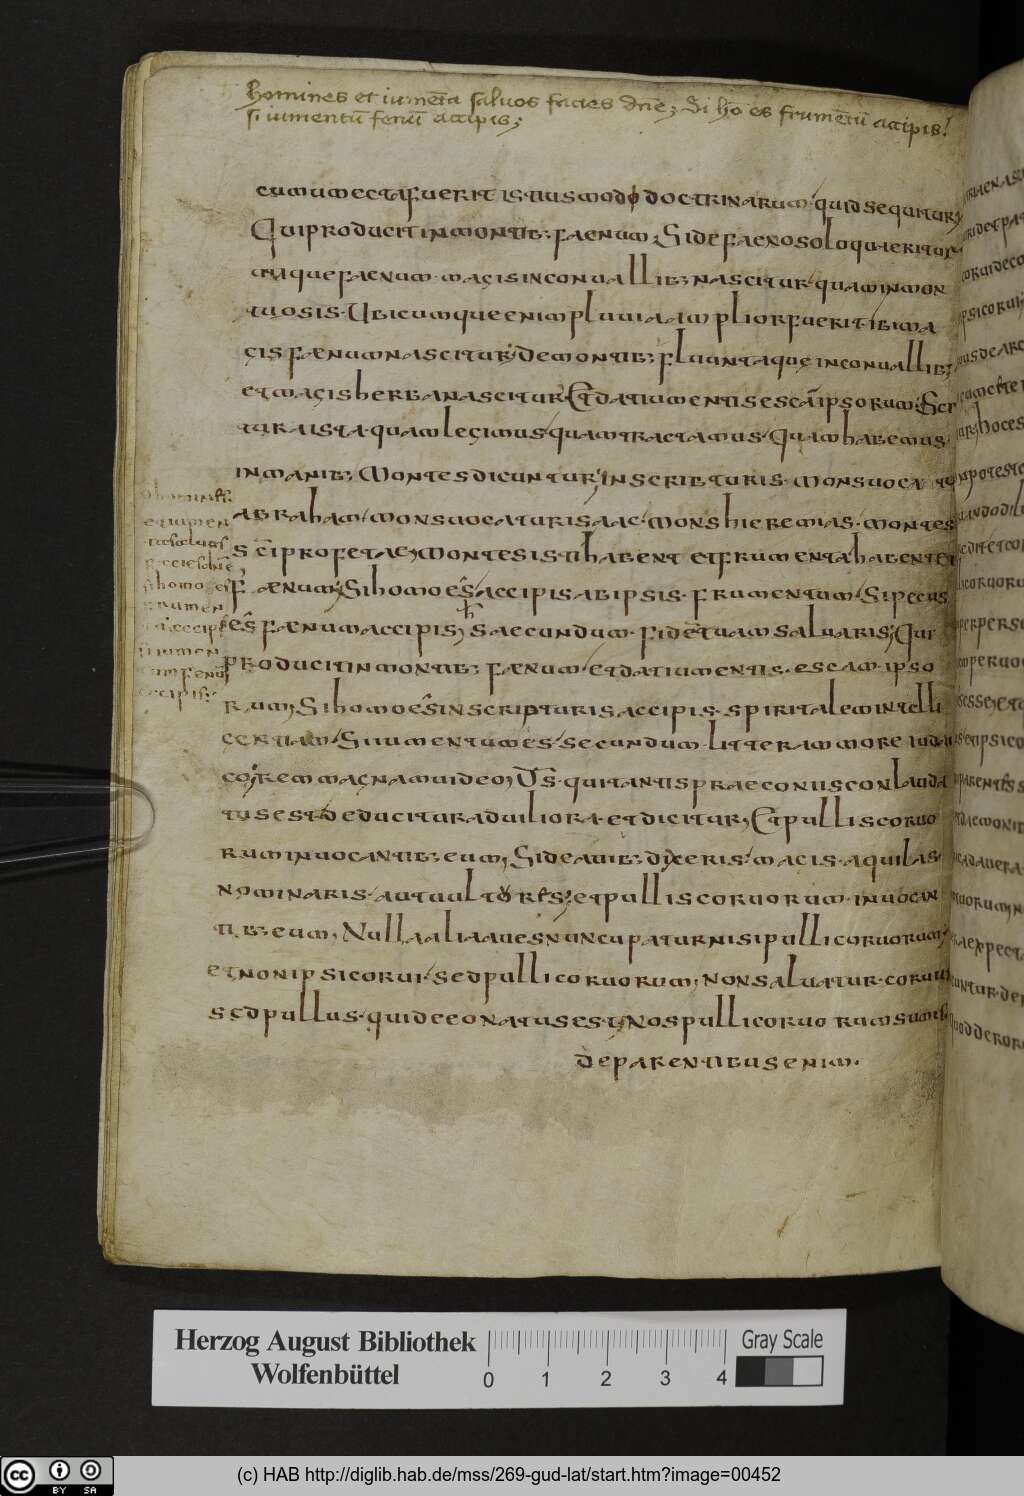 homines et iumēta saluos facies dn̄e; Si hō es frumētū accipis!
si iumentū fenū accipis;
cumumectafuerit istiusmodo doctrinarum quidsequitur;
Quiproducitinmontib; faenum; Sidefaenosoloquaeritur
utiquefaenum magisinconuallib; nascitur quaminmon
tuosis. Ubicumqueenimpluuiaamplior fuerit. ibima
gis faenumnascitur; demontib; fluuntaquęinconuallib;
etmagisherbanascitur; Etdatiumentisescāipsorum; Scrip
turaista quamlegimus quamtractamus Quamhabemus
inmanib; Montesdicuntur; inscribturis. monsuoca tur
abraham monsuocaturisaac. monshieremias. montes
sc̄iprofetae; montesistihabent etfrumentahabentet
faenum; Sihomoes accipisabipsis. frumentum Sipecus
es faenumaccipis; saecundum. fidētuamsaluaris; Qui
producitinmontib; faenum. etdatiumentis. escam. ipso
rum; Sihomoes inscripturisaccipis. spiritalemintelli
centiam Siiumentumes secundum litteram more iudai
co; remmagnamuideo; Us quitantispraeconiisconlauda
tusest deducituraduiliora. etdicitur; Etpulliscoruo
ruminuocantib; eum; Sideauib; dixeris magis. aquilas
nominaris autuultures; etpulliscoruorum. inuocan
tib; eum; Nullaaliaauesnuncupaturnisipullicoruorum;
etnonipsicorui sedpullicoruorum; nonsaluatur. coruus
sedpullus. quideeonatusest; Nospullicoruo rumsumus
deparentibusenim.
homines
et iumen
ta saluos
facies dn̄e;
si homo es
frumen
accipis
si iumen
tum fenū
accipis;
Herzog August Bibliothek
Wolfenbüttel
0 1 2 3 4
Gray Scale
cc BY SA
(c) HAB http://diglib.hab.de/mss/269-gud-lat/start.htm?image=00452